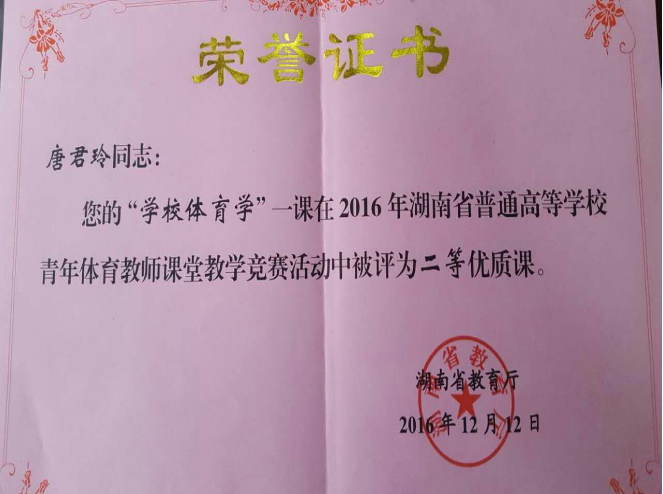 荣誉证书
唐君玲同志：
您的“学校体育学”一课在2016年湖南省普通高等学校
青年体育教师课堂教学竞赛活动中被评为二等优质课。
湖南省教育厅
湖南省教育厅
2016年12月12日